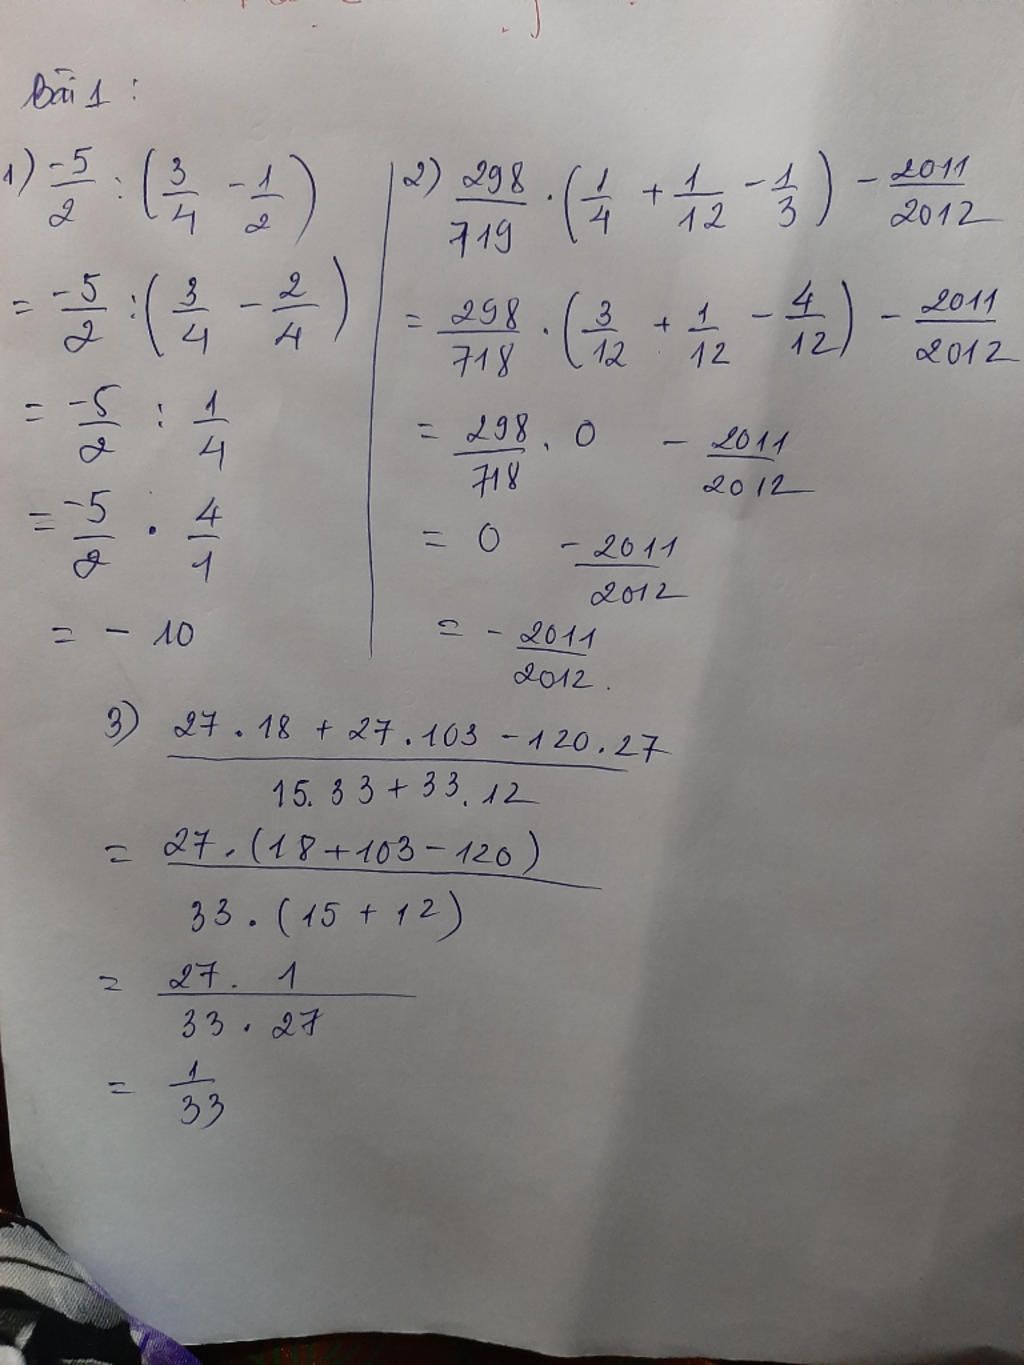 Bài 1 :
1) -5/2 : (3/4 - 1/2)
= -5/2 : (3/4 - 2/4)
= -5/2 : 1/4
= -5/2 . 4/1
= - 10
2) 298/719 . (1/4 + 1/12 - 1/3) - 2011/2012
= 298/718 . (3/12 + 1/12 - 4/12) - 2011/2012
= 298/718 . 0 - 2011/2012
= 0 - 2011/2012
= - 2011/2012.
3) 27 . 18 + 27 . 103 - 120 . 27
15. 33 + 33 . 12
= 27 . (18 + 103 - 120)
33 . (15 + 12)
= 27 . 1
33 . 27
= 1/33